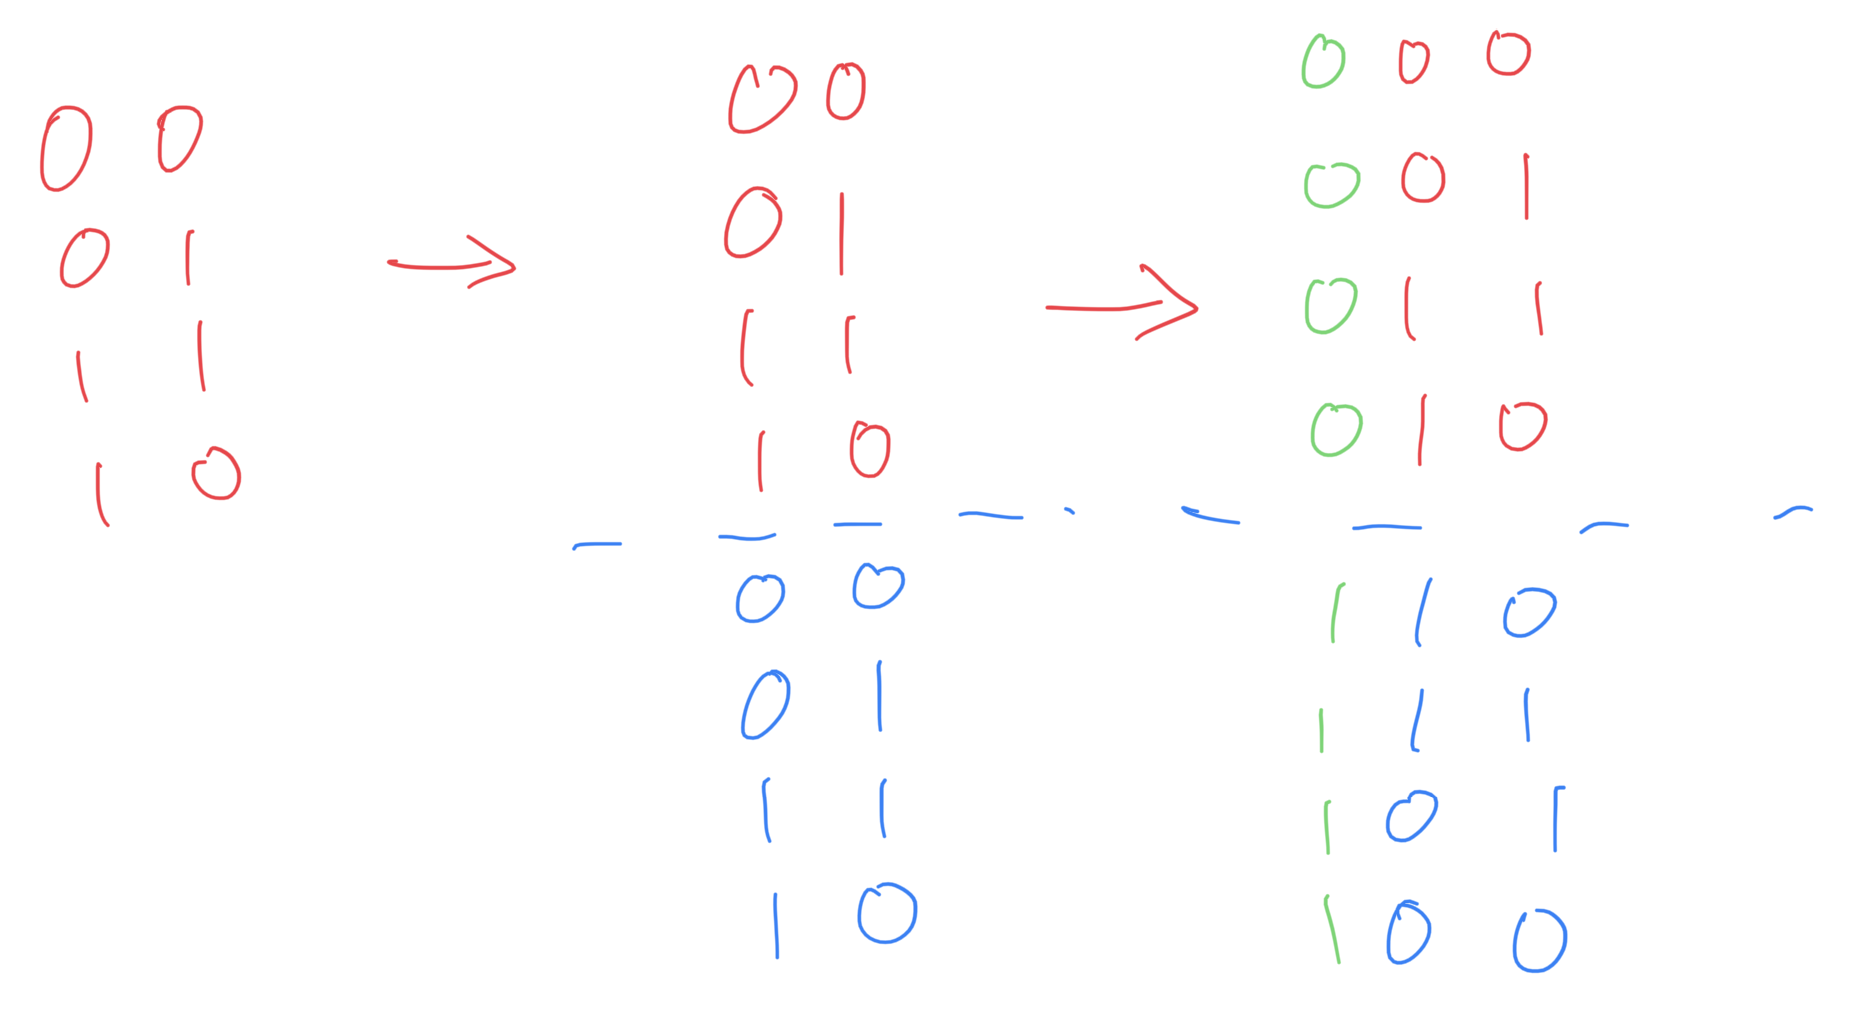 0 0
0 1
1 1
1 0
0 0
0 1
1 1
1 0
0 0
0 1
1 1
1 0
0 0 0
0 0 1
0 1 1
0 1 0
1 1 0
1 1 1
1 0 1
1 0 0